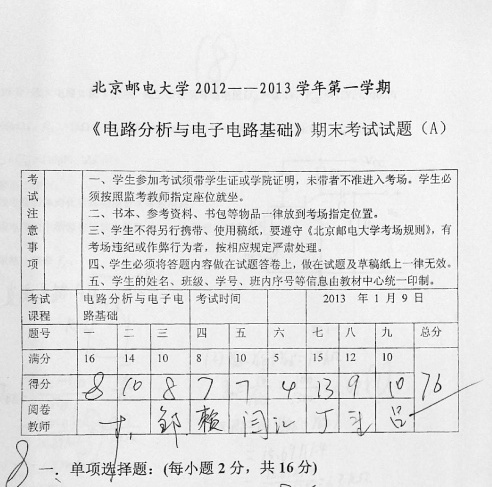 北京邮电大学 2012——2013 学年第一学期
《电路分析与电子电路基础》期末考试试题（A）
考试注意事项
一、学生参加考试须带学生证或学院证明，未带者不准进入考场。学生必
须按照监考教师指定座位就坐。
二、书本、参考资料、书包等物品一律放到考场指定位置。
三、学生不得另行携带、使用稿纸，要遵守《北京邮电大学考场规则》，有
考场违纪或作弊行为者，按相应规定严肃处理。
四、学生必须将答题内容做在试题答卷上，做在试题及草稿纸上一律无效。
五、学生的姓名、班级、学号、班内序号等信息由教材中心统一印制。
考试课程 电路分析与电子电路基础 考试时间 2013 年 1 月 9 日
题号 一 二 三 四 五 六 七 八 九 总分
满分 16 14 10 8 10 5 15 12 10
得分 8 10 8 7 7 4 13 9 10 76
阅卷教师 邹 赖 闫 丁 吕
8 一. 单项选择题：(每小题 2 分，共 16 分)